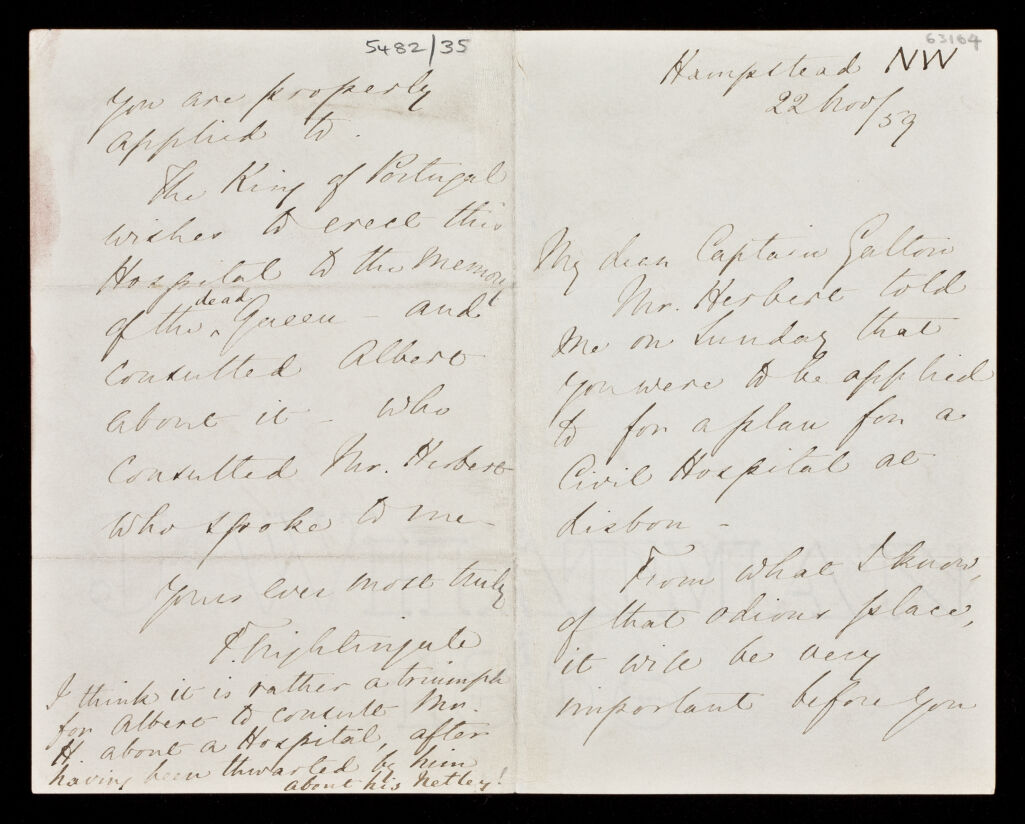 63164
Hampstead NW
22 Nov/59
My dear Captain Galton
Mr. Herbert told
me on Sunday that
you were to be applied
to for a plan for a
Civil Hospital at
Lisbon -
From what I know,
of that odious place,
it will be very
important before you
5482/35
you are properly
applied to.
The King of Portugal
wishes to erect this
Hospital to the memory
of the dead Queen - and
consulted Albert
about it - who
consulted Mr. Herbert
who spoke to me -
Yours ever most truly
F. Nightingale
I think it is rather a triumph
for Albert to consult Mr.
H. about a Hospital, after
having been thwarted by him
about his Netley!